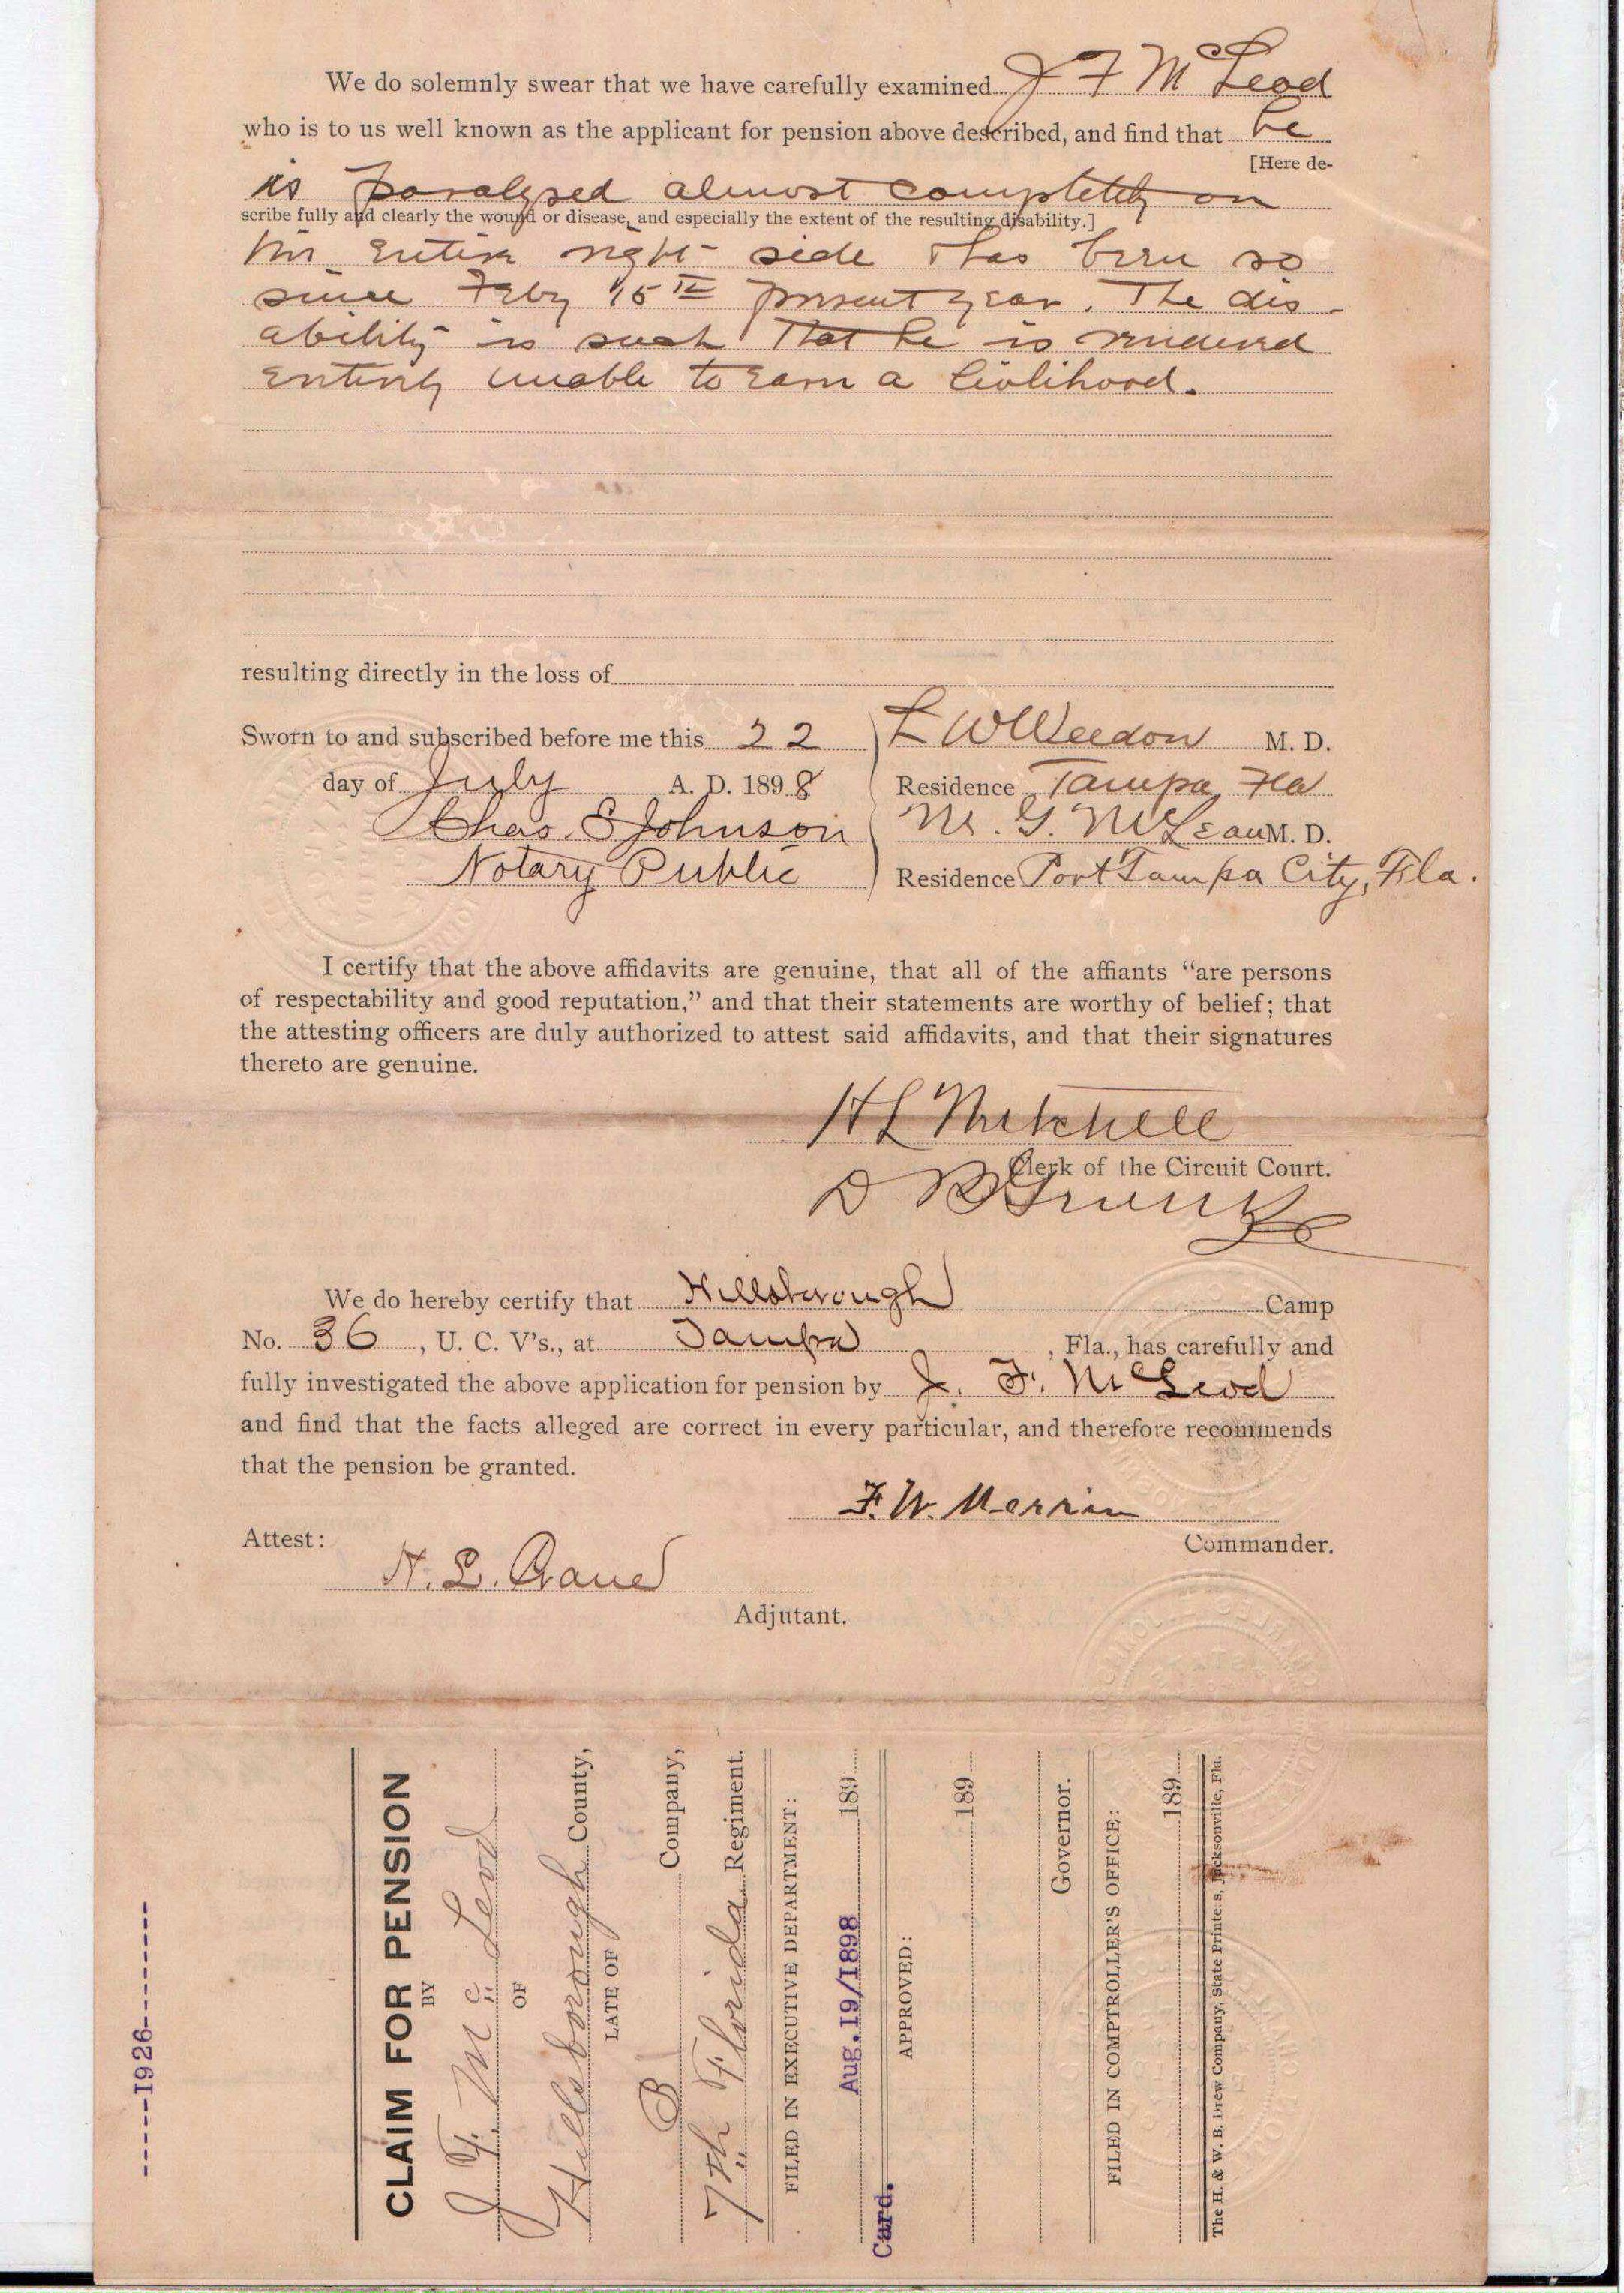 We do solemnly swear that we have carefully examined J F McLeod
who is to us well known as the applicant for pension above described, and find that he
[Here de-
is paralysed almost completely on
scribe fully and clearly the wound or disease, and especially the extent of the resulting disability.]
his entire right side & has been so
since Feby 15th present year. The dis-
ability is such that he is rendered
entirely unable to earn a livlihood.
resulting directly in the loss of
Sworn to and subscribed before me this 22
L W Weedon M. D.
day of July A. D. 1898
Residence Tampa, Fla
Chas. E Johnson
M. G. McLean M. D.
Notary Public
Residence Port Tampa City, Fla.
I certify that the above affidavits are genuine, that all of the affiants “are persons
of respectability and good reputation,” and that their statements are worthy of belief; that
the attesting officers are duly authorized to attest said affidavits, and that their signatures
thereto are genuine.
H L Mitchell
Clerk of the Circuit Court.
D B
We do hereby certify that Hillsborough Camp
No. 36, U. C. V's., at Tampa, Fla., has carefully and
fully investigated the above application for pension by J. F. McLeod
and find that the facts alleged are correct in every particular, and therefore recommends
that the pension be granted.
F. W. Merrin
Attest:
Commander.
H. L. Crane
Adjutant.
-----1926--------
CLAIM FOR PENSION
BY
J. F. McLeod
OF
Hillsborough County,
LATE OF
B Company,
7th Florida Regiment.
FILED IN EXECUTIVE DEPARTMENT:
Aug.19/1898 189
Card.
APPROVED:
189
Governor.
FILED IN COMPTROLLER'S OFFICE:
189
The H. & W. B. Drew Company, State Printers, Jacksonville, Fla.